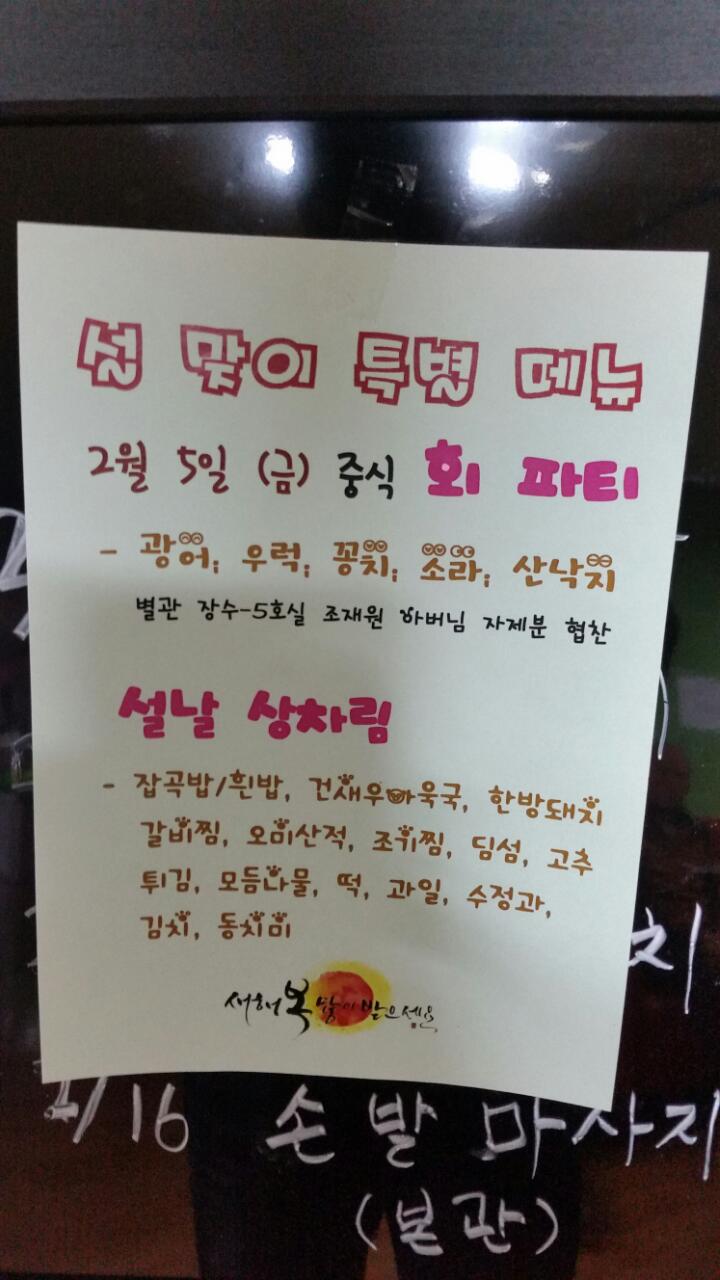 설 맞이 특별 메뉴
2월 5일 (금) 중식 회 파티
- 광어; 우럭; 꽁치; 소라; 산낙지
별관 장수-5호실 조재원 아버님 자제분 협찬
설날 상차림
- 잡곡밥/흰밥, 건새우아욱국, 한방돼지
갈비찜, 오미산적, 조기찜, 딤섬, 고추
튀김, 모듬나물, 떡, 과일, 수정과,
김치, 동치미
치
새해 복 많이 받으세요
/16 손 발 마사지
(본관)